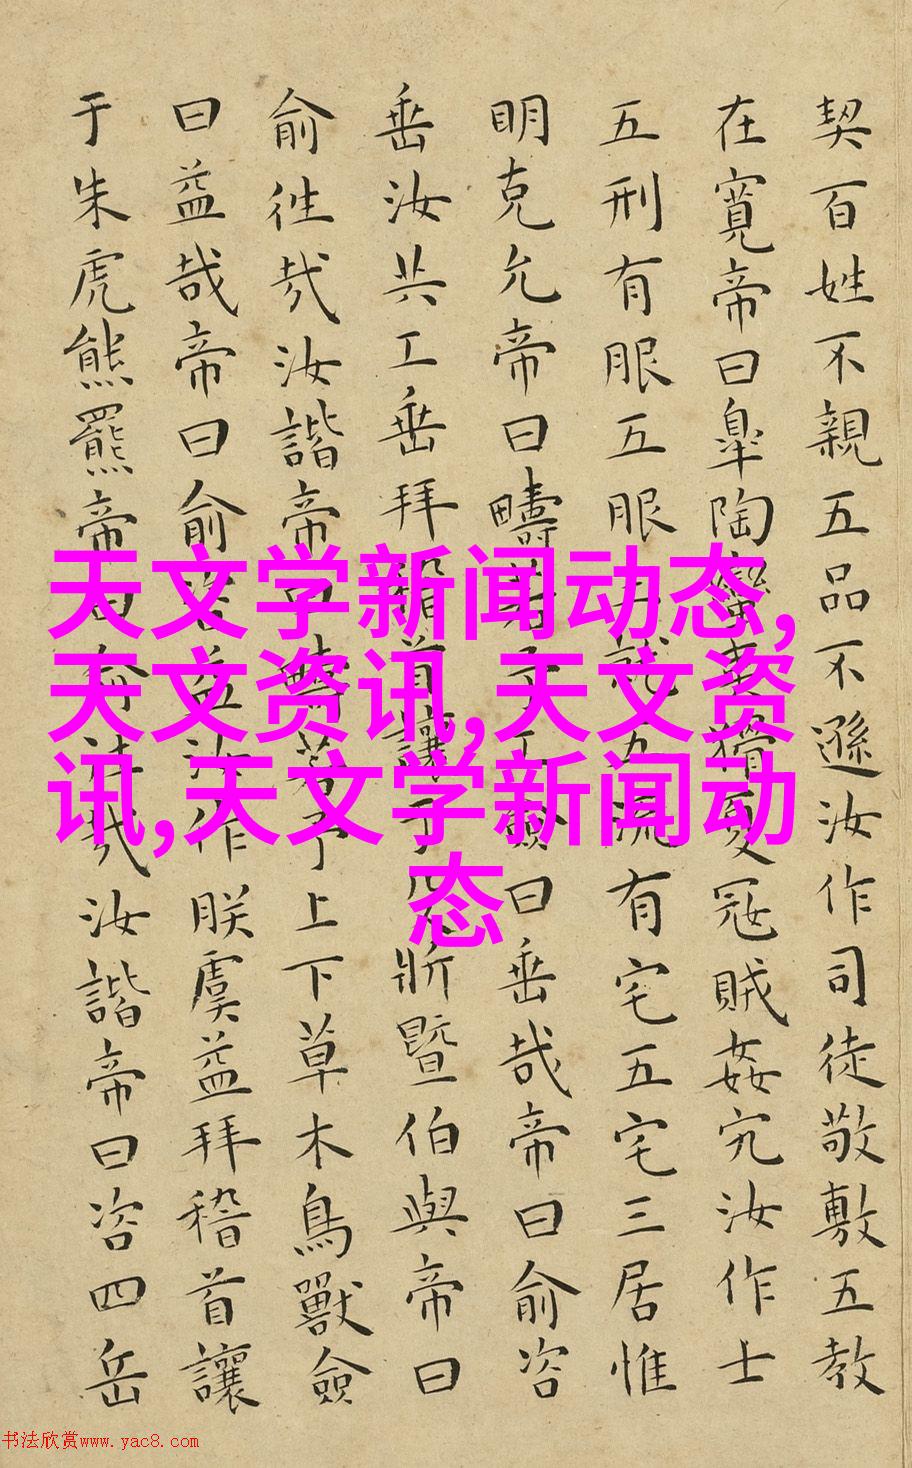 契百姓不親五品不遜汝作司徒敬敷五教
在寬帝曰臯陶蠻夷猾夏寇賊姦宄汝作士
五刑有服五服三就五流有宅五宅三居惟
明克允帝曰疇若予工僉曰垂哉帝曰俞咨
垂汝共工垂拜稽首讓于殳斨暨伯與帝曰
俞往哉汝諧帝曰疇若予上下草木鳥獸僉
曰益哉帝曰俞咨益汝作朕虞益拜稽首讓
于朱虎熊羆帝曰俞往哉汝諧帝曰咨四岳
天文学新闻动态,
天文资讯,天文资
讯,天文学新闻动
态
书法欣赏www.yac8.com